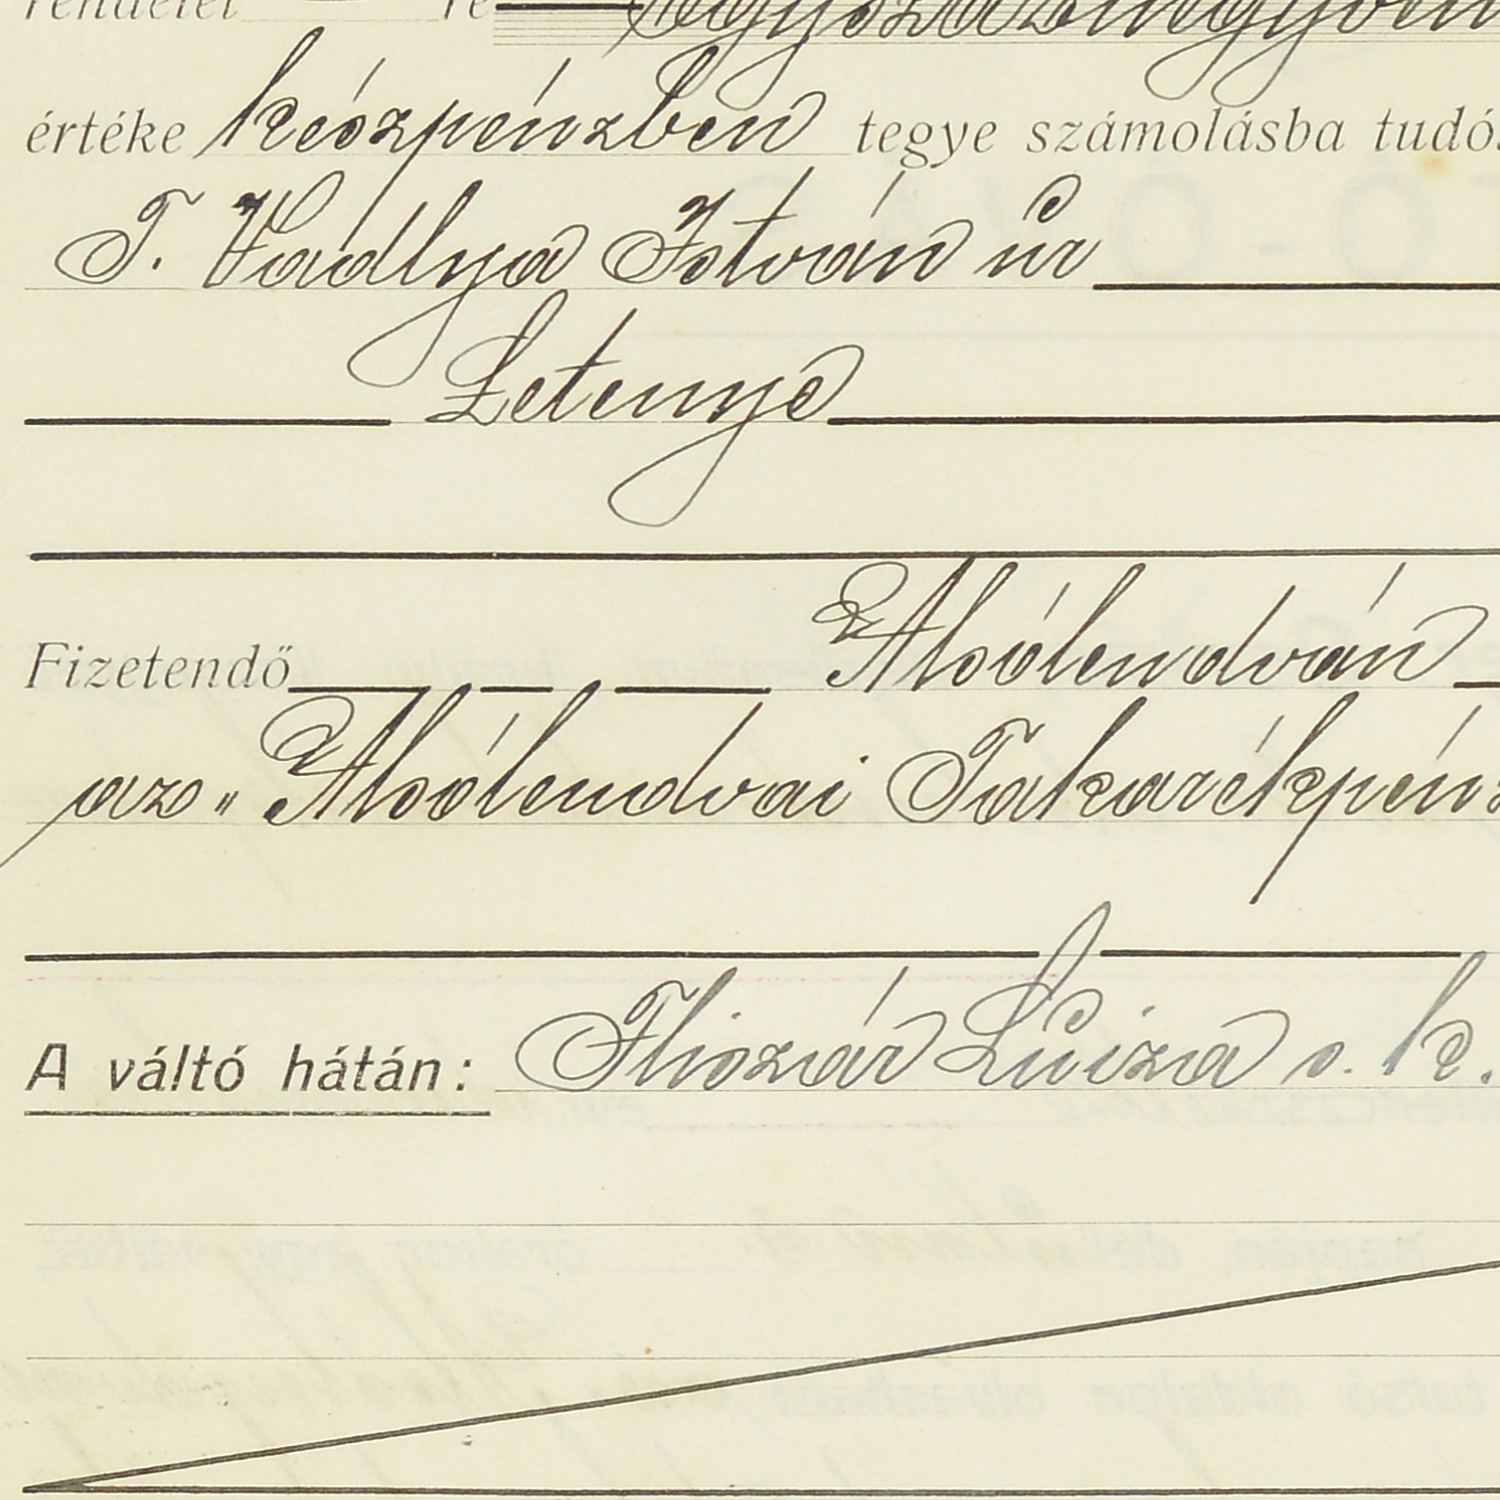 rendelet re
értéke készpénzben tegye számolásba tudó
T. Vadlya István úr
Letenye
Fizetendő Alsólendván
az „Alsólendvai Takarékpénz
A váltó hátán: Fliszár Luiza s. k.